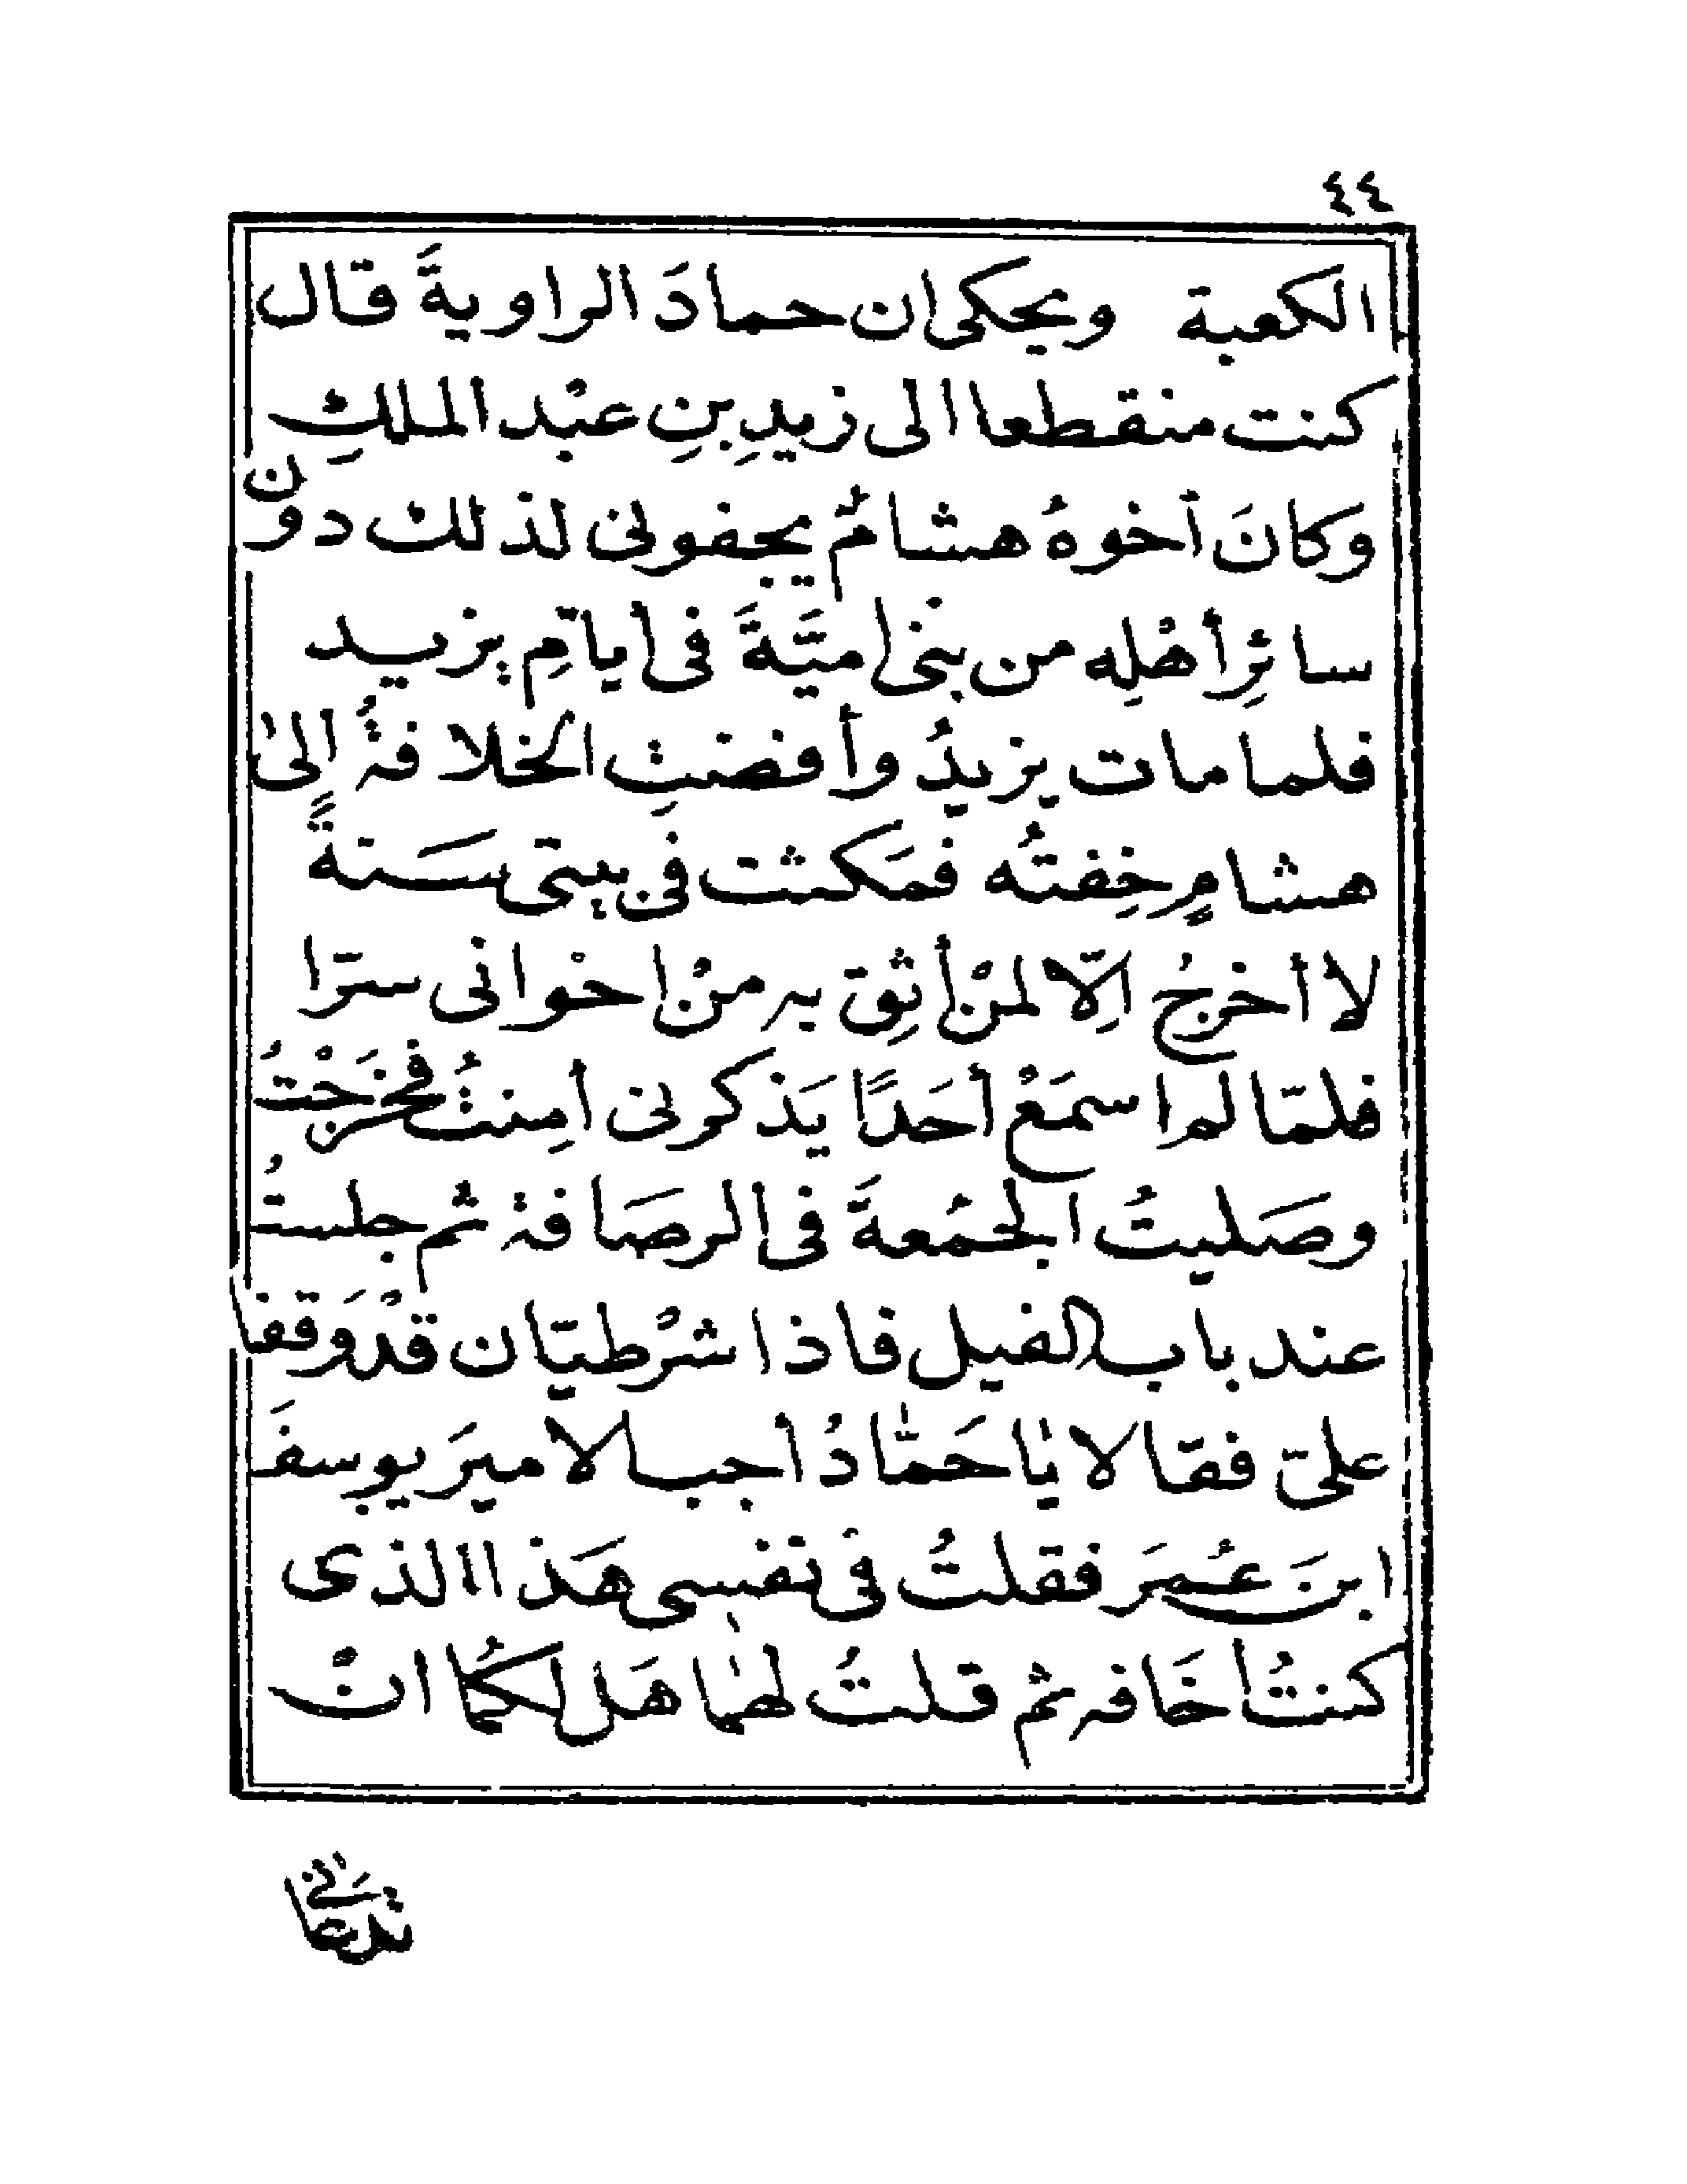 ٤٤
الكعبة ويحكى ان حمادَ الراويةَ قال
كنت منقطعا الى زيدِ بنِ عبْد الملكِ
وكانَ أخوهُ هشامٌ يجفونى لذلك دون
سائرِ أهْلِه من بنى اميَّةَ فى أيامِ يزيد
فلما مات يزيدُ وأفضتِ الخلافةُ إلىٰ
هشامٍ خِفتُه فمَكثت فى بيتى سَنةً
لا أخرجُ اِلّا لمنْ أثِق به منْ اخْوانى سرّا
فلمّا لم اسمَعْ أحَدًا يَذكرنى أمِنتُ فخَرَجْتُ
وصَليتُ الجمُعةَ فى الرصَافة ثم جلستُ
عند باب الفيل فاذا شرْطيّان قدْ وَقفا
علىّ فقالا يٰا حَمّٰادُ أجب الاميرَ يوسفَ
ابنَ عُمرَ فقلتُ فى نفسى هَذا الذى
كنتُ اخَافه ثم قلتُ لهمٰا هَل لكُما انْ
تدعانى